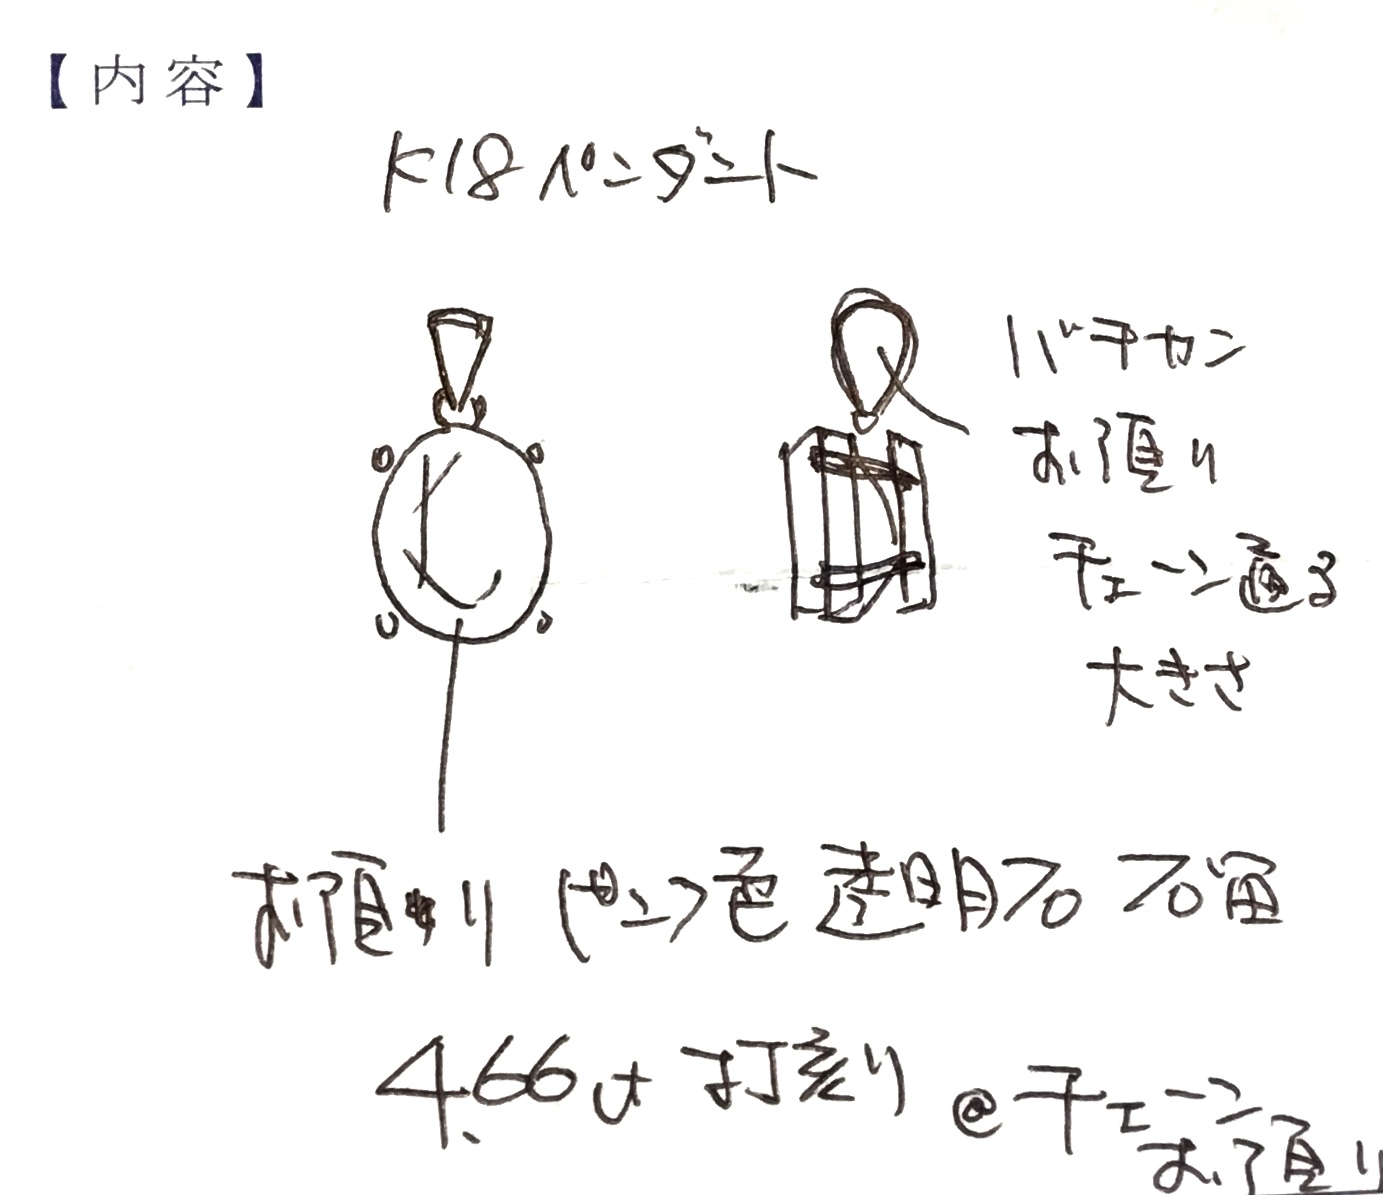 【内容】
K18ペンダント
バチカン
お預り
チェーン通る
大きさ
お預り 色 透明
4.66ct 打刻 @チェーン
お預り